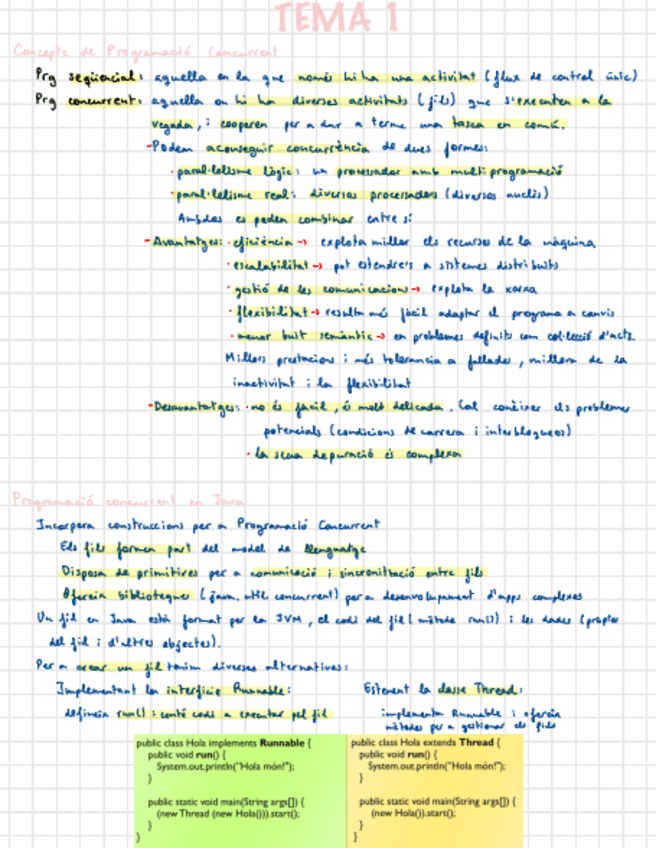 TEMA 1
Concepte de Programació Concurrent
Prg seqüencial: aquella en la que només hi ha una activitat (flux de control únic)
Prg concurrent: aquella on hi ha diverses activitats (fils) que s'executen a la
vegada, i cooperen per a dur a terme una tasca en comú.
- Podem aconseguir concurrència de dues formes:
· paral·lelisme lògic: un processador amb multiprogramació
· paral·lelisme real: diversos processadors (diversos nuclis)
Ambdos es poden combinar entre si
- Avantatges: · eficiència → explota millor els recursos de la màquina
· escalabilitat → pot estendre's a sistemes distribuïts
· gestió de les comunicacions → explota la xarxa
· flexibilitat → resulta més fàcil adaptar el programa a canvis
· menor buit semàntic → en problemes definits com col·lecció d'acts.
Millors prestacions i més tolerancia a fallades, millora de la
inactivitat i la flexibilitat
- Desavantatges: · no és fàcil, és molt delicada. Cal conèixer els problemes
potencials (condicions de carrera i interbloqueos)
· la seua depuració és complexa
Programació concurrent en Java
Incorpora construccions per a Programació Concurrent
Els fils formen part del model de llenguatge
Disposa de primitives per a comunicació i sincronització entre fils
Ofereix biblioteques (java.util.concurrent) per a desenvolupament d'apps complexes
Un fil en Java està format per la JVM, el codi del fil (mètode run()) i les dades (propies
del fil i d'altres objectes).
Per a crear un fil tenim diverses alternatives:
Implementant la interfície Runnable:
defineix run(): conté codi a executar pel fil
Estenent la classe Thread:
implementa Runnable i ofereix
mètodes per a gestionar els fils
public class Hola implements Runnable {
public void run() {
System.out.println("Hola món!");
}
public static void main(String args[]) {
(new Thread (new Hola())).start();
}
}
public class Hola extends Thread {
public void run() {
System.out.println("Hola món!");
}
public static void main(String args[]) {
(new Hola()).start();
}
}